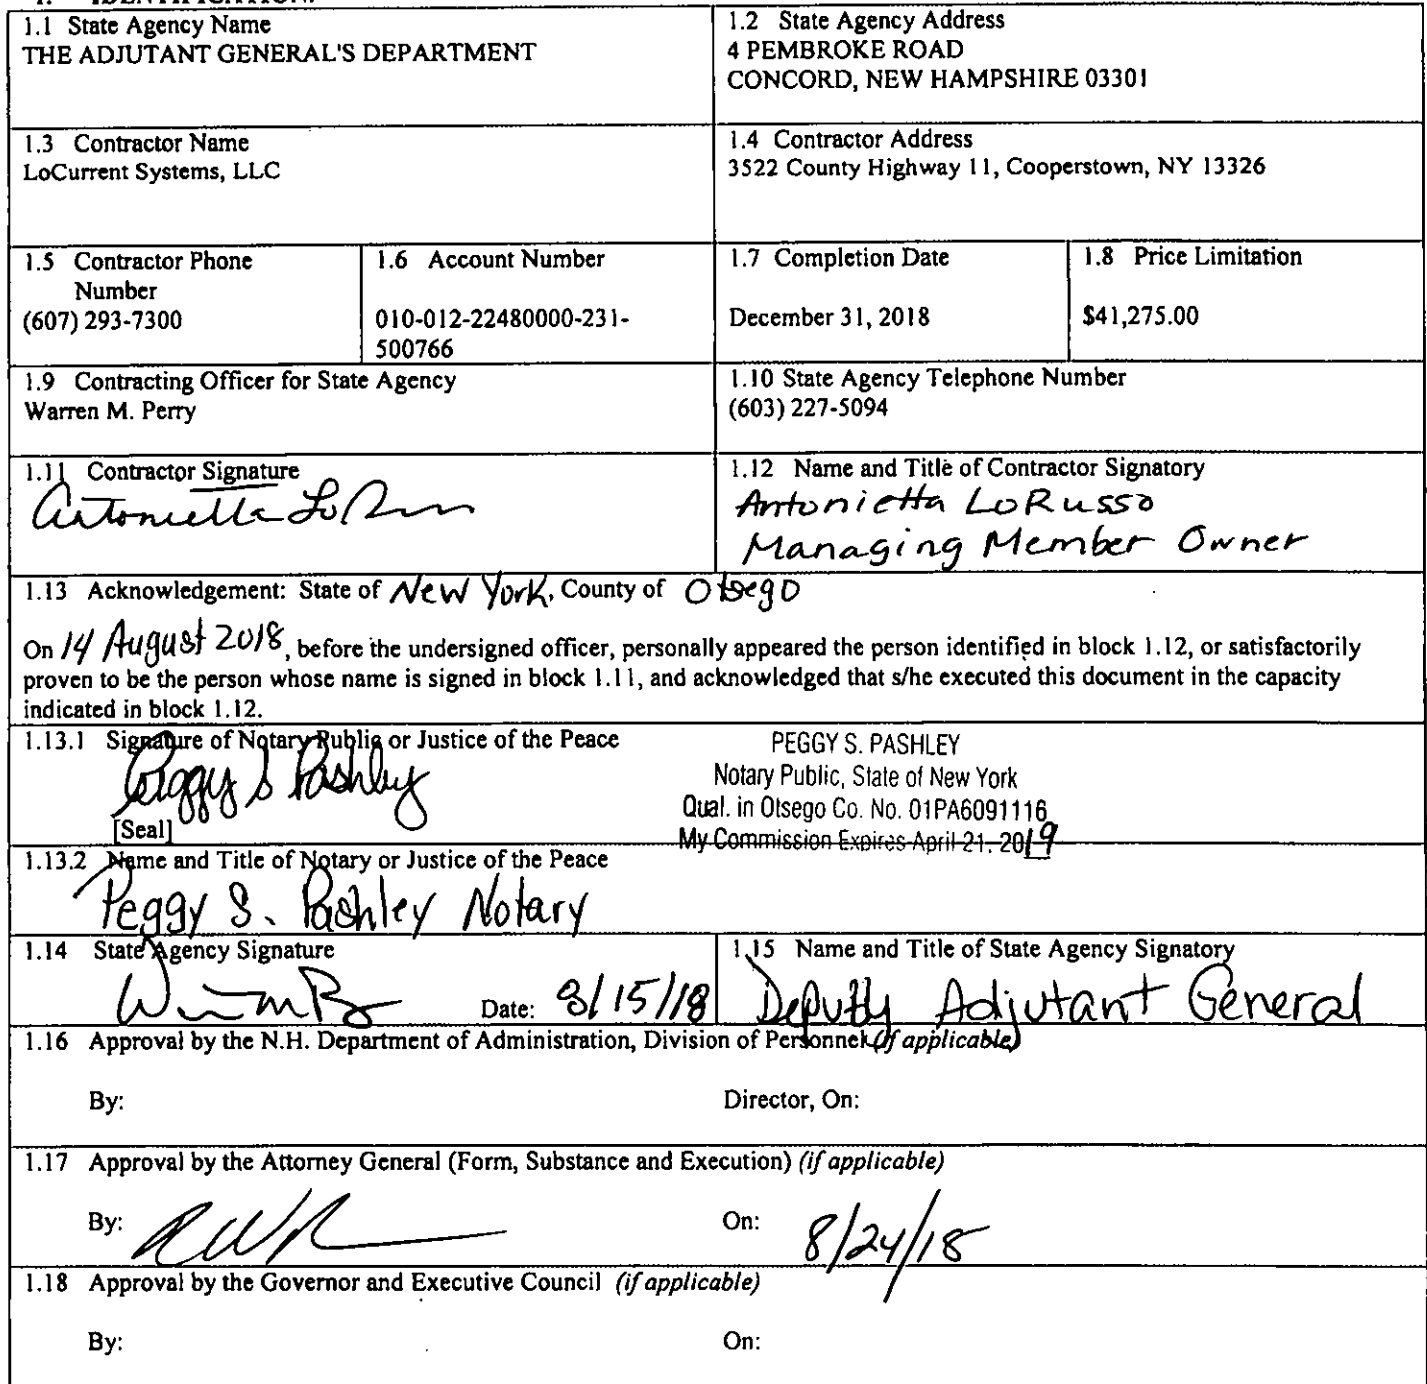 1.1 State Agency Name
THE ADJUTANT GENERAL'S DEPARTMENT
1.2 State Agency Address
4 PEMBROKE ROAD
CONCORD, NEW HAMPSHIRE 03301
1.3 Contractor Name
LoCurrent Systems, LLC
1.4 Contractor Address
3522 County Highway 11, Cooperstown, NY 13326
1.5 Contractor Phone
Number
(607) 293-7300
1.6 Account Number
010-012-22480000-231-
500766
1.7 Completion Date
December 31, 2018
1.8 Price Limitation
$41,275.00
1.9 Contracting Officer for State Agency
Warren M. Perry
1.10 State Agency Telephone Number
(603) 227-5094
1.11 Contractor Signature
Antonietta Lo
1.12 Name and Title of Contractor Signatory
Antonietta LoRusso
Managing Member Owner
1.13 Acknowledgement: State of New York, County of Otsego
On 14 August 2018, before the undersigned officer, personally appeared the person identified in block 1.12, or satisfactorily
proven to be the person whose name is signed in block 1.11, and acknowledged that s/he executed this document in the capacity
indicated in block 1.12.
1.13.1 Signature of Notary Public or Justice of the Peace
Peggy S Pashley
[Seal]
PEGGY S. PASHLEY
Notary Public, State of New York
Qual. in Otsego Co. No. 01PA6091116
My Commission Expires April 21, 2019
1.13.2 Name and Title of Notary or Justice of the Peace
Peggy S. Pashley Notary
1.14 State Agency Signature
Date: 8/15/18
1.15 Name and Title of State Agency Signatory
Deputy Adjutant General
1.16 Approval by the N.H. Department of Administration, Division of Personnel (if applicable)
By:
Director, On:
1.17 Approval by the Attorney General (Form, Substance and Execution) (if applicable)
By:
On: 8/24/18
1.18 Approval by the Governor and Executive Council (if applicable)
By:
On: